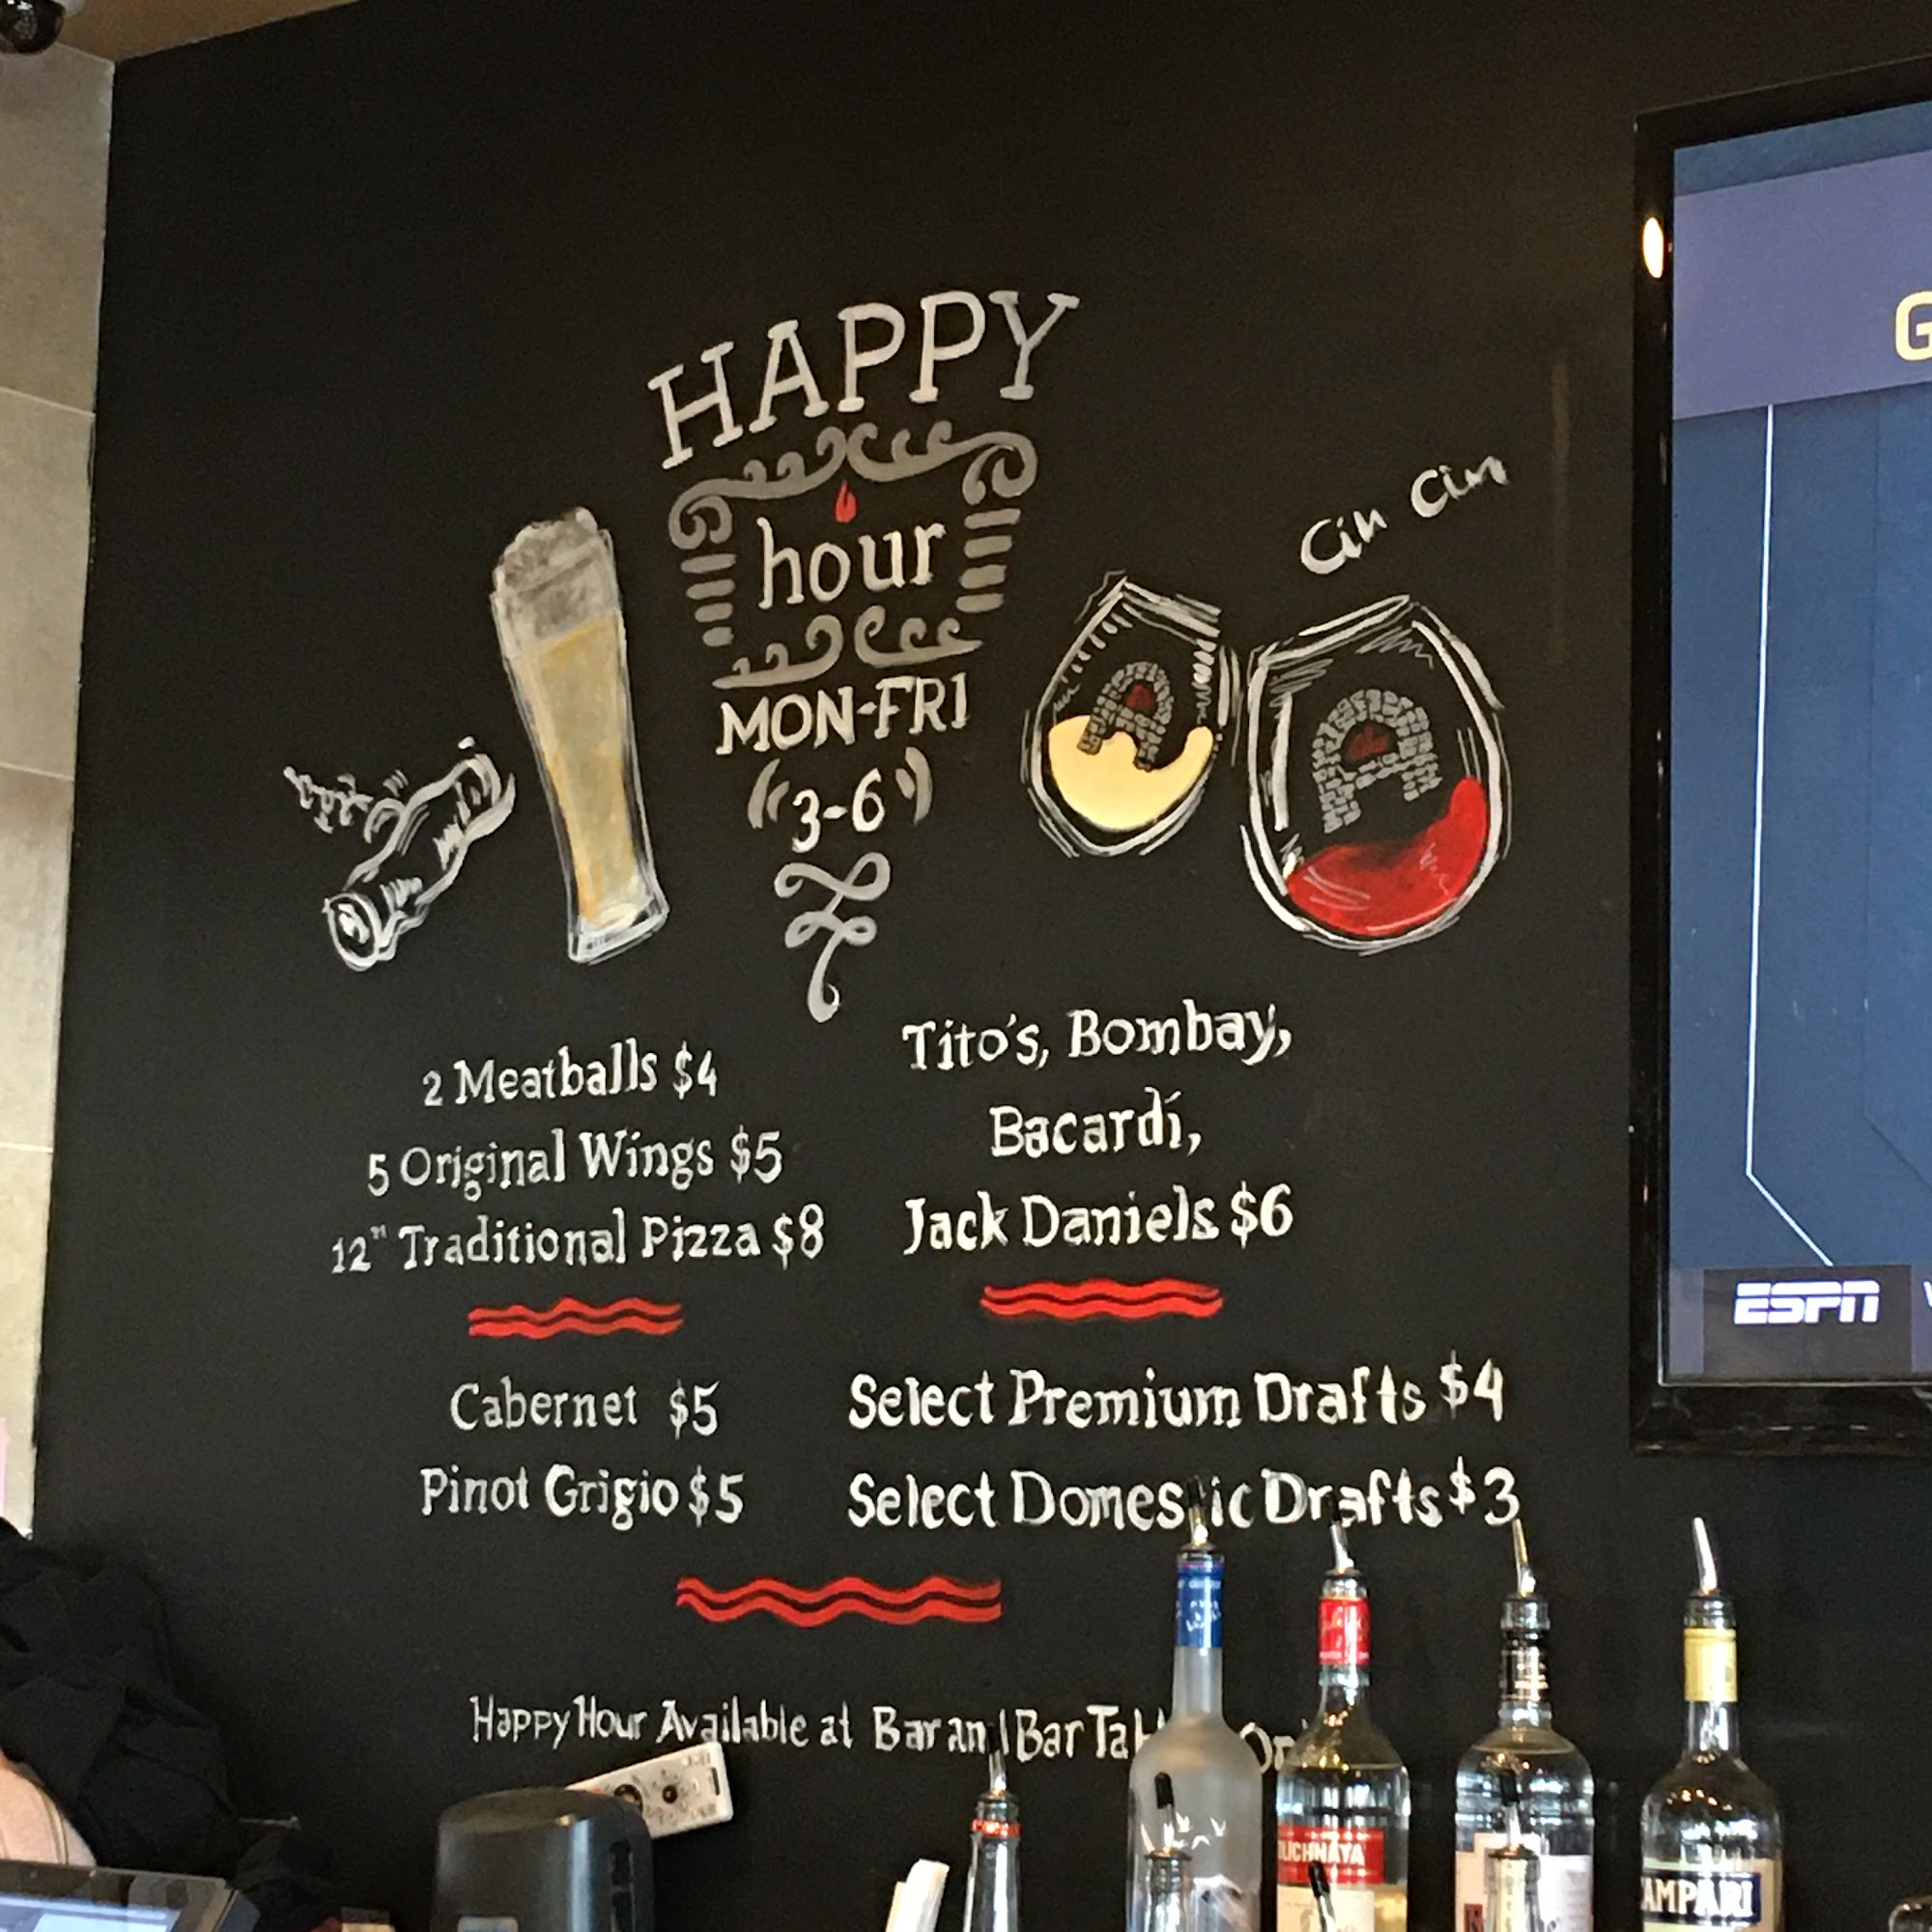 HAPPY
hour
MON-FRI
3-6
Cin Cin
2 Meatballs $4
5 Original Wings $5
12" Traditional Pizza $8
Tito's, Bombay,
Bacardi,
Jack Daniels $6
Cabernet $5
Pinot Grigio $5
Select Premium Drafts $4
Select Domestic Drafts $3
Happy Hour Available at Bar and Bar
G
ESPN